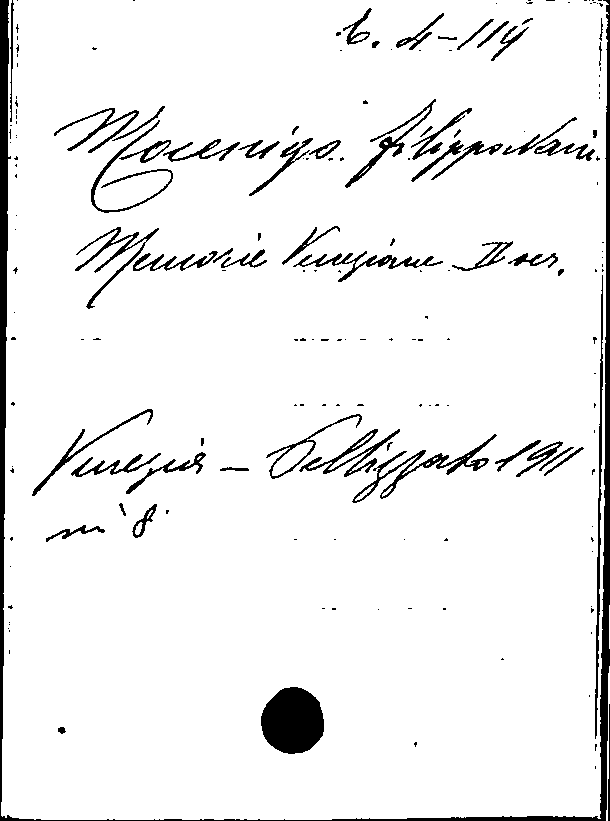 6. 4-114
Mocenigo. Filippo Nani.
Memorie Veneziane II ser.
Venezia - Pellizzato 1911
in 8°